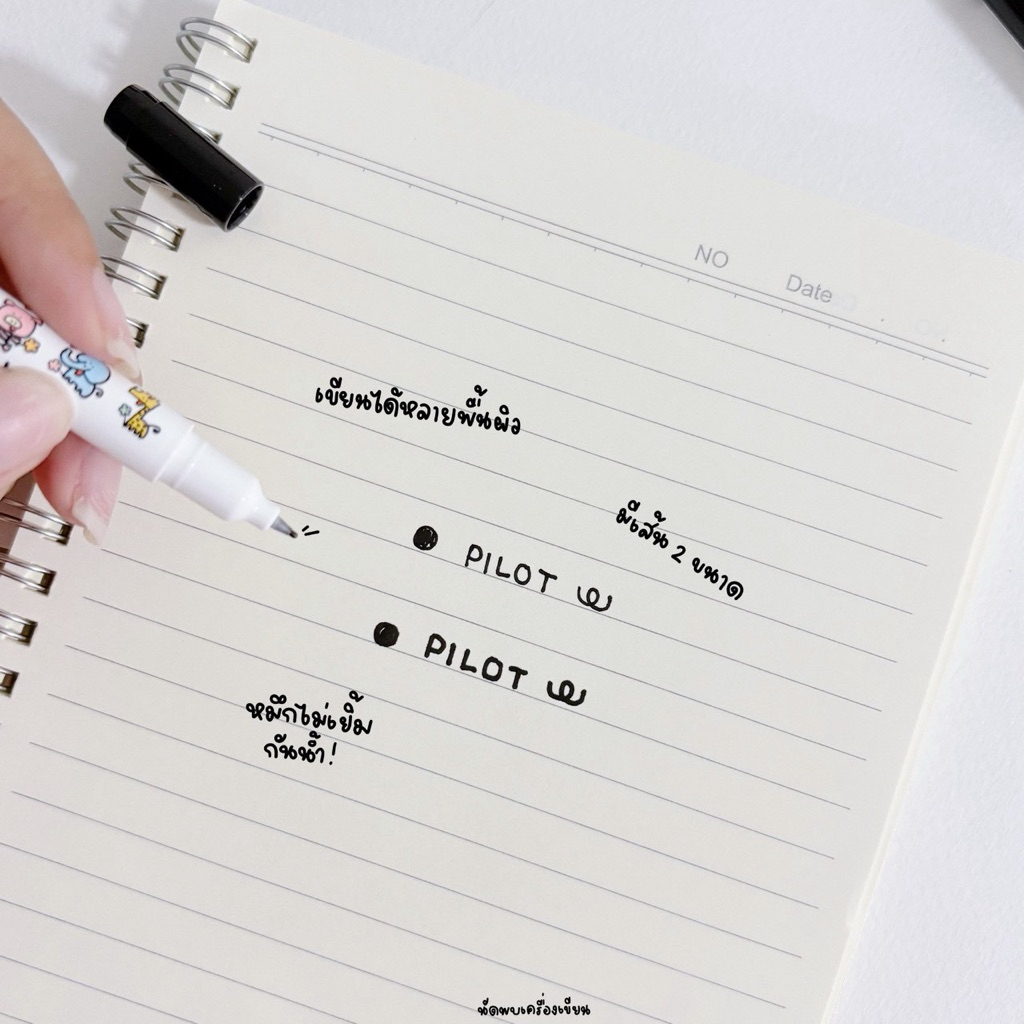 NO Date
เขียนได้หลายพื้นผิว
มีเส้น 2 ขนาด
PILOT
PILOT
หมึกไม่เยิ้ม
กันน้ำ!
นัดพบเครื่องเขียน